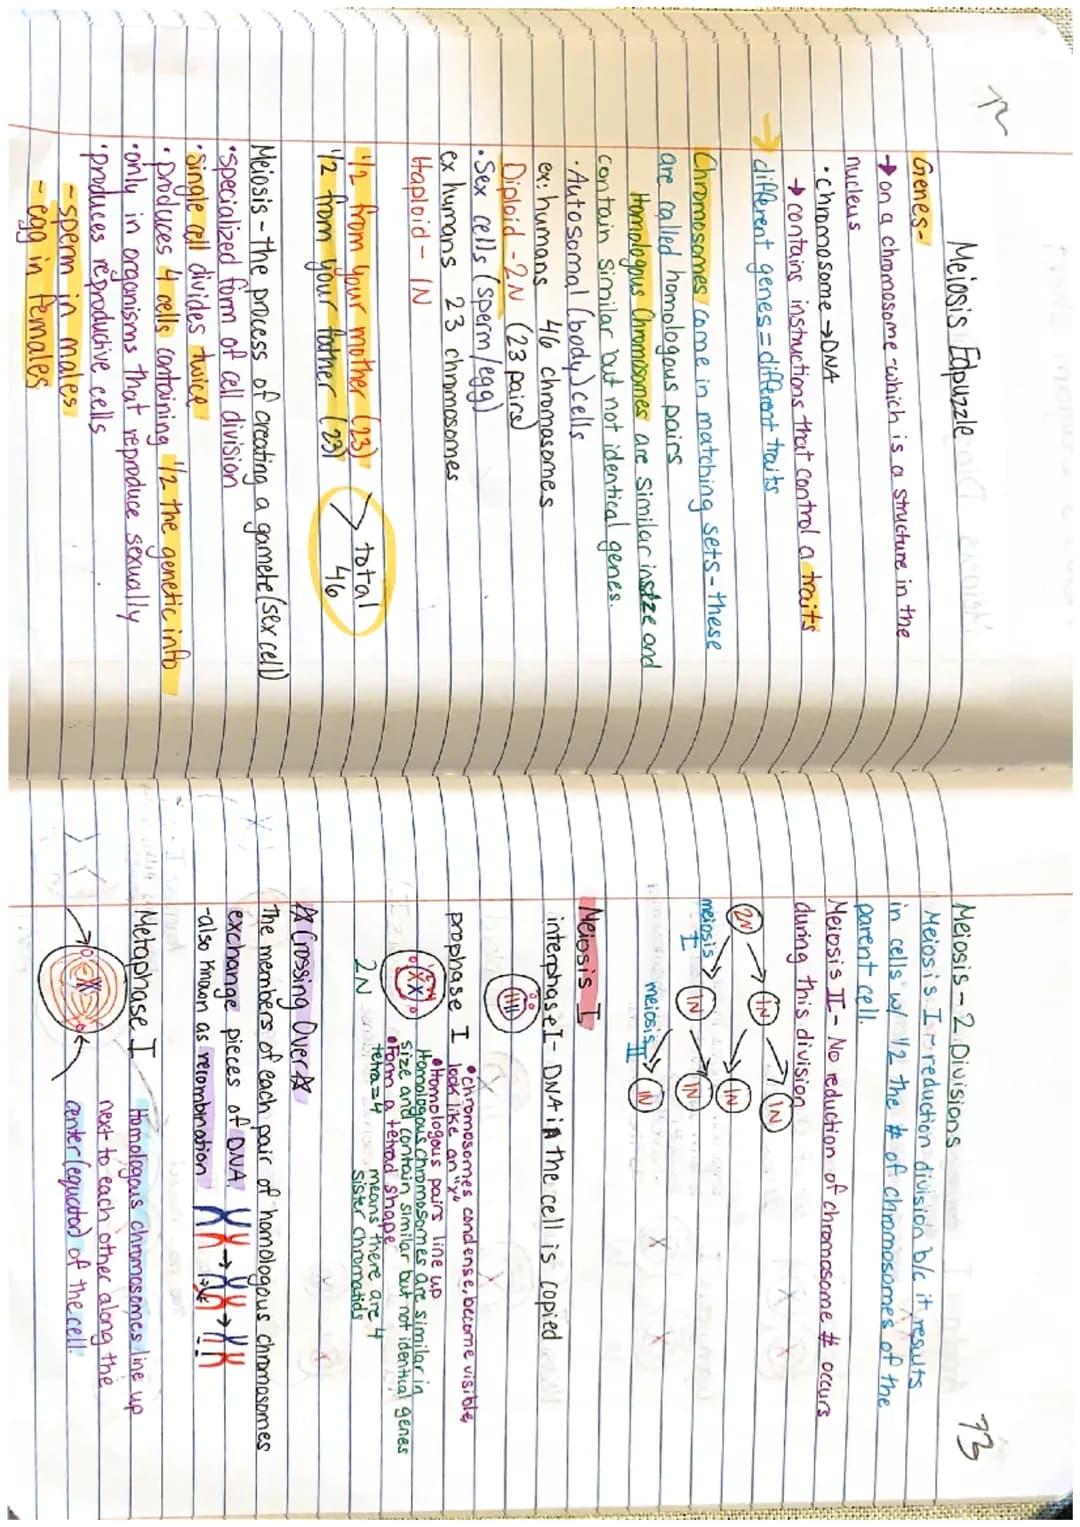 72
Meiosis Edpuzzle
Genes-
→ on a chromosome - which is a structure in the
nucleus
• chromosome → DNA
→ contains instructions that control a traits
→ different genes = different traits
Chromosomes come in matching sets - these
are called homologous pairs
Homologous Chromosomes are similar in size and
contain similar but not identical genes.
• Autosomal (body) cells
ex: humans 46 chromosomes
Diploid - 2N (23 pairs)
• Sex cells (sperm/egg)
ex humans 23 chromosomes
Haploid - 1N
1/2 from your mother (23)
1/2 from your father (23)
> total
46
Meiosis - the process of creating a gamete (sex cell)
• specialized form of cell division
• single cell divides twice
• produces 4 cells containing 1/2 the genetic info
• only in organisms that reproduce sexually
• produces reproductive cells
- sperm in males
- egg in females
73
Meiosis - 2 Divisions
Meiosis I - reduction division b/c it results
in cells w/ 1/2 the # of chromosomes of the
parent cell.
Meiosis II - No reduction of chromosome # occurs
during this division
2N
1N
1N
1N
1N
1N
1N
meiosis
I
meiosis II
Meiosis I
interphase I - DNA in the cell is copied
prophase I
• chromosomes condense, become visible,
look like an "x"
• Homologous pairs line up
Homologous chromosomes are similar in
size and contain similar but not identical genes
• Form a tetrad shape
tetra = 4 means there are 4
sister chromatids
2N
☆ Crossing Over ☆
The members of each pair of homologous chromosomes
exchange pieces of DNA
- also known as recombination
Metaphase I
Homologous chromosomes line up
next to each other along the
center (equator) of the cell.